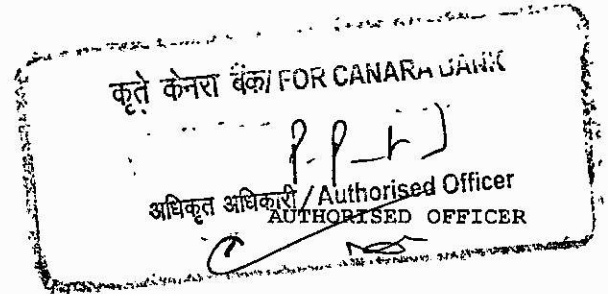 कृते केनरा बैंक/ FOR CANARA BANK
अधिकृत अधिकारी / Authorised Officer
AUTHORISED OFFICER